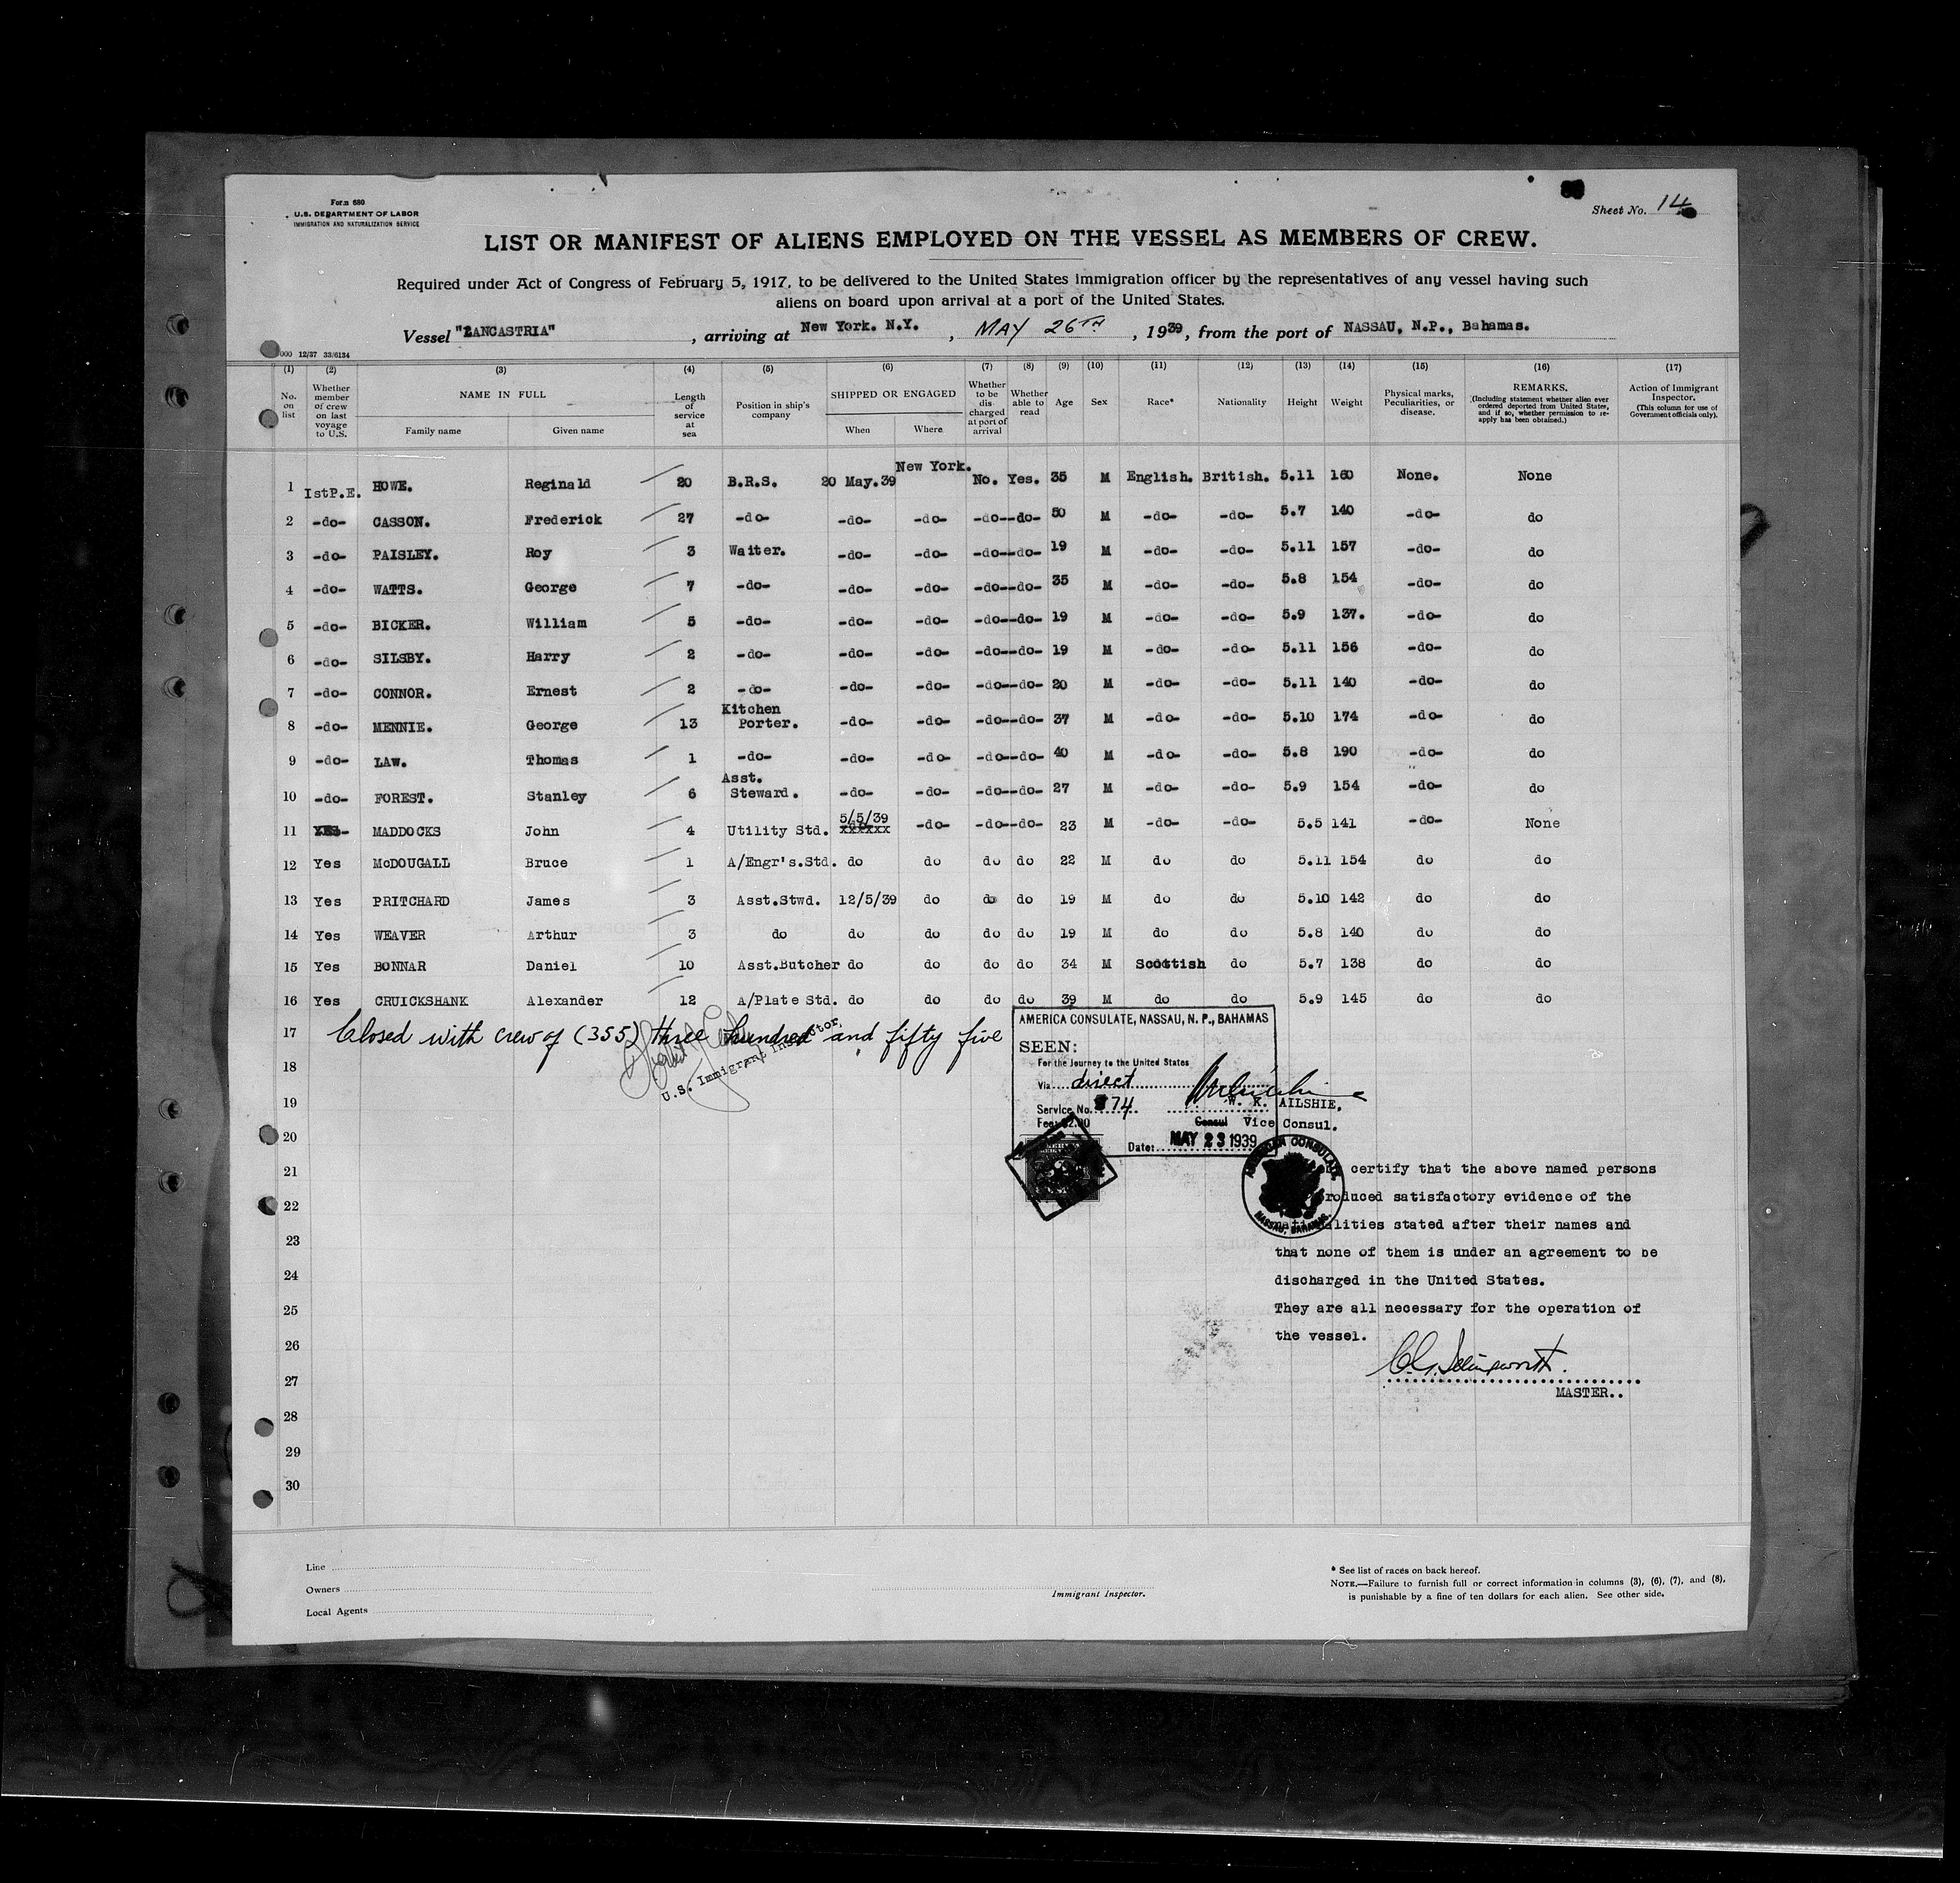 Form 680
U.S. DEPARTMENT OF LABOR
IMMIGRATION AND NATURALIZATION SERVICE
Sheet No. 14
LIST OR MANIFEST OF ALIENS EMPLOYED ON THE VESSEL AS MEMBERS OF CREW.
Required under Act of Congress of February 5, 1917, to be delivered to the United States immigration officer by the representatives of any vessel having such
aliens on board upon arrival at a port of the United States.
Vessel "LANCASTRIA", arriving at New York. N.Y., MAY 26TH, 1939, from the port of NASSAU, N.P., Bahamas.
000 12/37 33/6134
(1) (2) (3) (4) (5) (6) (7) (8) (9) (10) (11) (12) (13) (14) (15) (16) (17)
No. on list
Whether member of crew on last voyage to U.S.
NAME IN FULL
Family name
Given name
Length of service at sea
Position in ship's company
SHIPPED OR ENGAGED
When
Where
Whether to be discharged at port of arrival
Whether able to read
Age
Sex
Race*
Nationality
Height
Weight
Physical marks, Peculiarities, or disease.
REMARKS.
(Including statement whether alien ever ordered deported from United States, and if so, whether permission to reapply has been obtained.)
Action of Immigrant Inspector.
(This column for use of Government officials only).
1 IstP.E. HOWE. Reginald 20 B.R.S. 20 May.39 New York. No. Yes. 35 M English. British. 5.11 160 None. None
2 -do- CASSON. Frederick 27 -do- -do- -do- -do- -do- 50 M -do- -do- 5.7 140 -do- do
3 -do- PAISLEY. Roy 3 Waiter. -do- -do- -do- -do- 19 M -do- -do- 5.11 157 -do- do
4 -do- WATTS. George 7 -do- -do- -do- -do- -do- 35 M -do- -do- 5.8 154 -do- do
5 -do- BICKER. William 5 -do- -do- -do- -do- -do- 19 M -do- -do- 5.9 137. -do- do
6 -do- SILSBY. Harry 2 -do- -do- -do- -do- -do- 19 M -do- -do- 5.11 156 -do- do
7 -do- CONNOR. Ernest 2 -do- -do- -do- -do- -do- 20 M -do- -do- 5.11 140 -do- do
8 -do- MENNIE. George 13 Kitchen Porter. -do- -do- -do- -do- 37 M -do- -do- 5.10 174 -do- do
9 -do- LAW. Thomas 1 -do- -do- -do- -do- -do- 40 M -do- -do- 5.8 190 -do- do
10 -do- FOREST. Stanley 6 Asst. Steward. -do- -do- -do- -do- 27 M -do- -do- 5.9 154 -do- do
11 MADDOCKS John 4 Utility Std. 5/5/39 -do- -do- -do- 23 M -do- -do- 5.5 141 -do- None
12 Yes McDOUGALL Bruce 1 A/Engr's.Std. do do do do 22 M do do 5.11 154 do do
13 Yes PRITCHARD James 3 Asst.Stwd. 12/5/39 do do do 19 M do do 5.10 142 do do
14 Yes WEAVER Arthur 3 do do do do do 19 M do do 5.8 140 do do
15 Yes BONNAR Daniel 10 Asst.Butcher do do do do 34 M Scottish do 5.7 138 do do
16 Yes CRUICKSHANK Alexander 12 A/Plate Std. do do do do 39 M do do 5.9 145 do do
17 Closed with crew of (355) three hundred and fifty five
U.S. Immigrant Inspector.
18
19
20
21
22
23
24
25
26
27
28
29
30
AMERICA CONSULATE, NASSAU, N. P., BAHAMAS
SEEN:
For the Journey to the United States
Via direct
Service No. 874
W. K. AILSHIE,
Fee: $2.00
Consul Vice Consul.
Date: MAY 23 1939
AMERICAN CONSULATE
NASSAU, BAHAMAS.
certify that the above named persons
produced satisfactory evidence of the
nationalities stated after their names and
that none of them is under an agreement to be
discharged in the United States.
They are all necessary for the operation of
the vessel.
MASTER..
Line
Owners
Local Agents
Immigrant Inspector.
* See list of races on back hereof.
NOTE.—Failure to furnish full or correct information in columns (3), (6), (7), and (8),
is punishable by a fine of ten dollars for each alien. See other side.